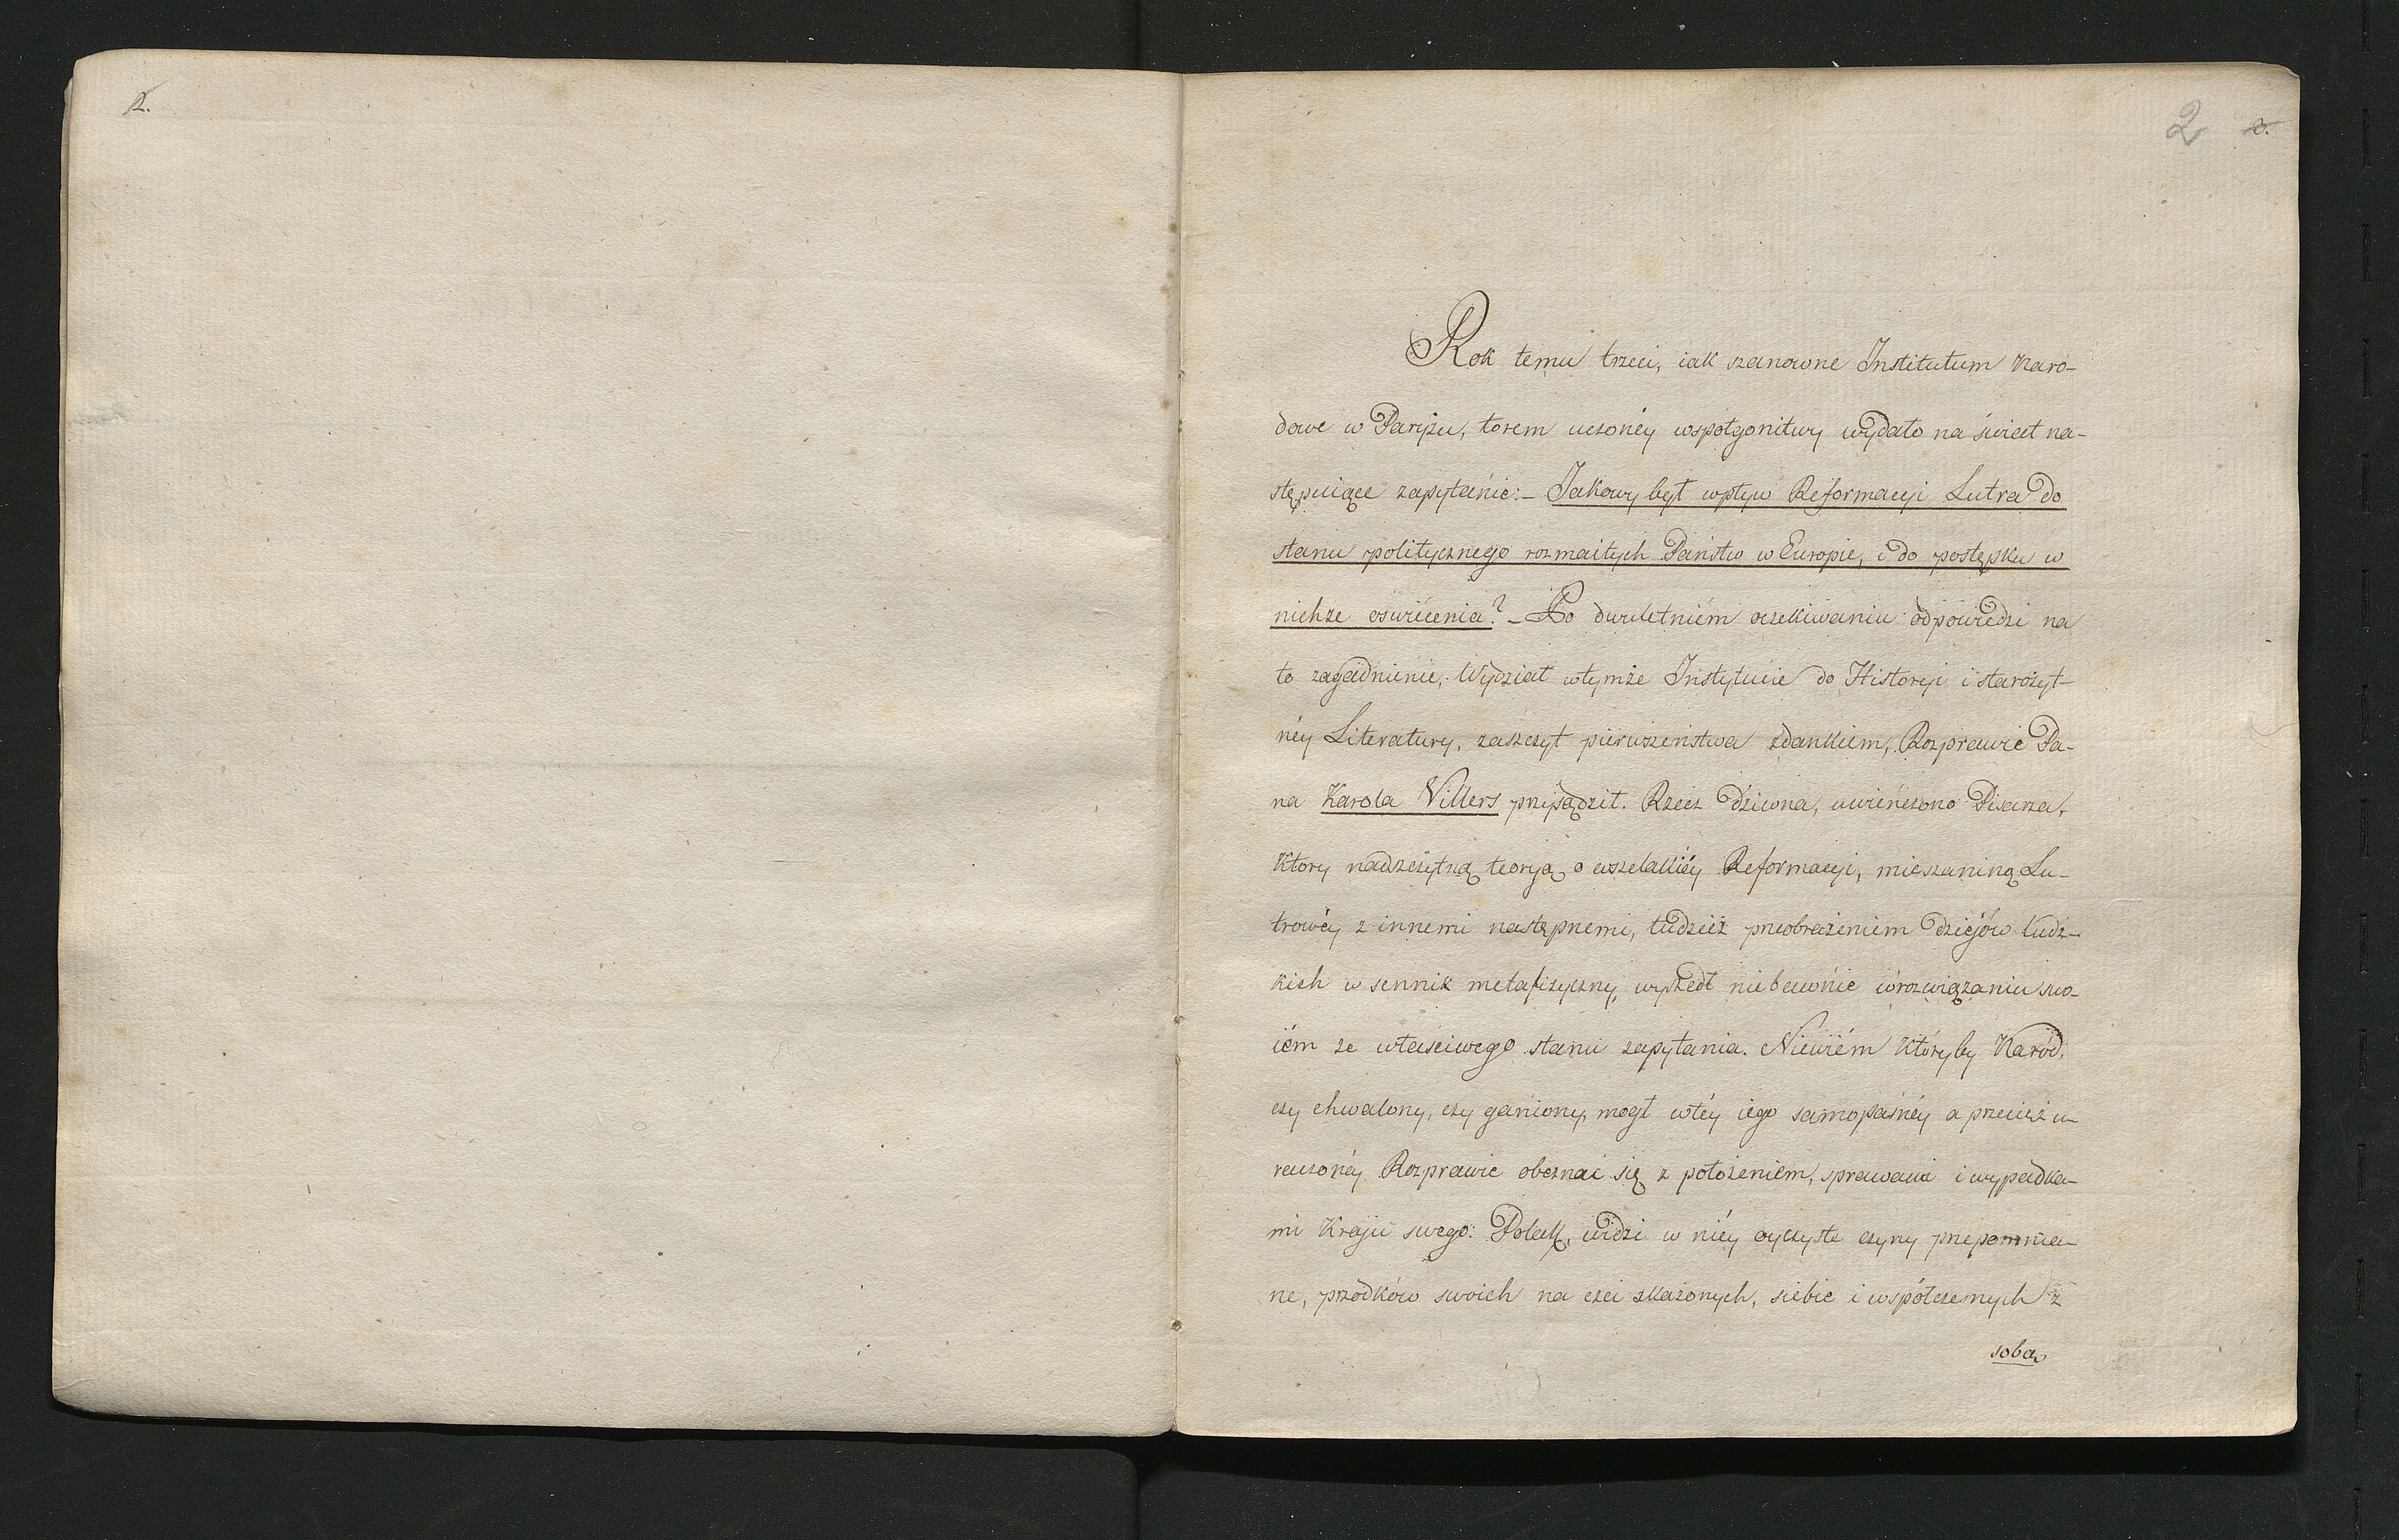 2.
2 3.
Rok temu trzeci, iak szanowne Institutum Naro-
dowe w Paryżu, torem uczonéy wspołgonitwy wydało na świat na-
stępuiące zapytanie:– Jakowy był wpływ Reformacyi Lutra do
stanu politycznego rozmaitych Państw w Europie, i do postępku w
nichże oświécenia? – Po dwuletniém oczekiwaniu odpowiedzi na
to zagadnienie, Wydział wtymże Instytucie do Historyi i starożyt-
néy Literatury, zaszczyt pierwszeństwa zdankiem, Rozprawie Pa-
na Karola Villers przysądził. Rzecz dziwna, uwieńczono Pisarza,
Ktory nadszczytną teoryą o wszelakiéy Reformacyi, mieszaniną Lu-
trowéy z innemi następnemi, tudzież przeobrażeniem dziejów ludz-
kich w sennik metafizyczny, wyszedł niebawnie w rozwiązaniu swo-
iém ze właściwego stanu zapytania. Niewiém któryby Naród,
czy chwalony, czy ganiony, mogł wtéy iego samopaśnéy a przecież u-
wieczonéy Rozprawie obeznać się z położeniem, sprawami i wypadka-
mi Kraju swego: Polak, widzi w niéy oyczyste czyny przepomnia-
ne, przodków swoich na czci skażonych, siebie i współczesnych z
sobą